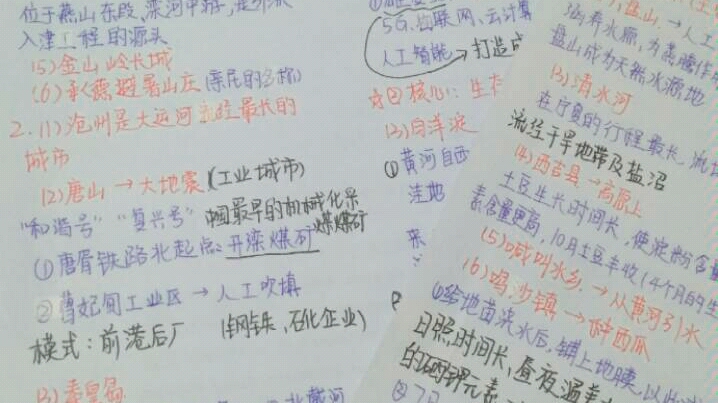 位于燕山东段,滦河中游,是引滦
入津工程的源头
(5)金山岭长城
(6)承德避暑山庄
2.(1)沧州是大运河流经最长的
城市
(2)唐山→大地震(工业城市)
"和谐号""复兴号"中国最早的机械化采
煤煤矿
①唐胥铁路北起点:开滦煤矿
②曹妃甸工业区→人工吹填
模式:前港后厂 (钢铁、石化企业)
(3)秦皇岛
北戴河
5G、互联网、云计算
人工智能→打造成
☆四核心:生
(3)白洋淀
①黄河自西
洼地
来
盘山→人工
盘山成为天然水源地
(3)清水河
在宁夏的行程最长,流
流经干旱地带及盐沼
(4)西吉县→高原上
土豆生长时间长,使淀粉含量
素含量更高,10月土豆丰收(4个月的生
(5)喊叫水乡→从黄河引水
(6)鸣沙镇→种西瓜
①给地苗浇水后,铺上地膜,以此
日照时间长,昼夜温差
的硒钾元素
②7日